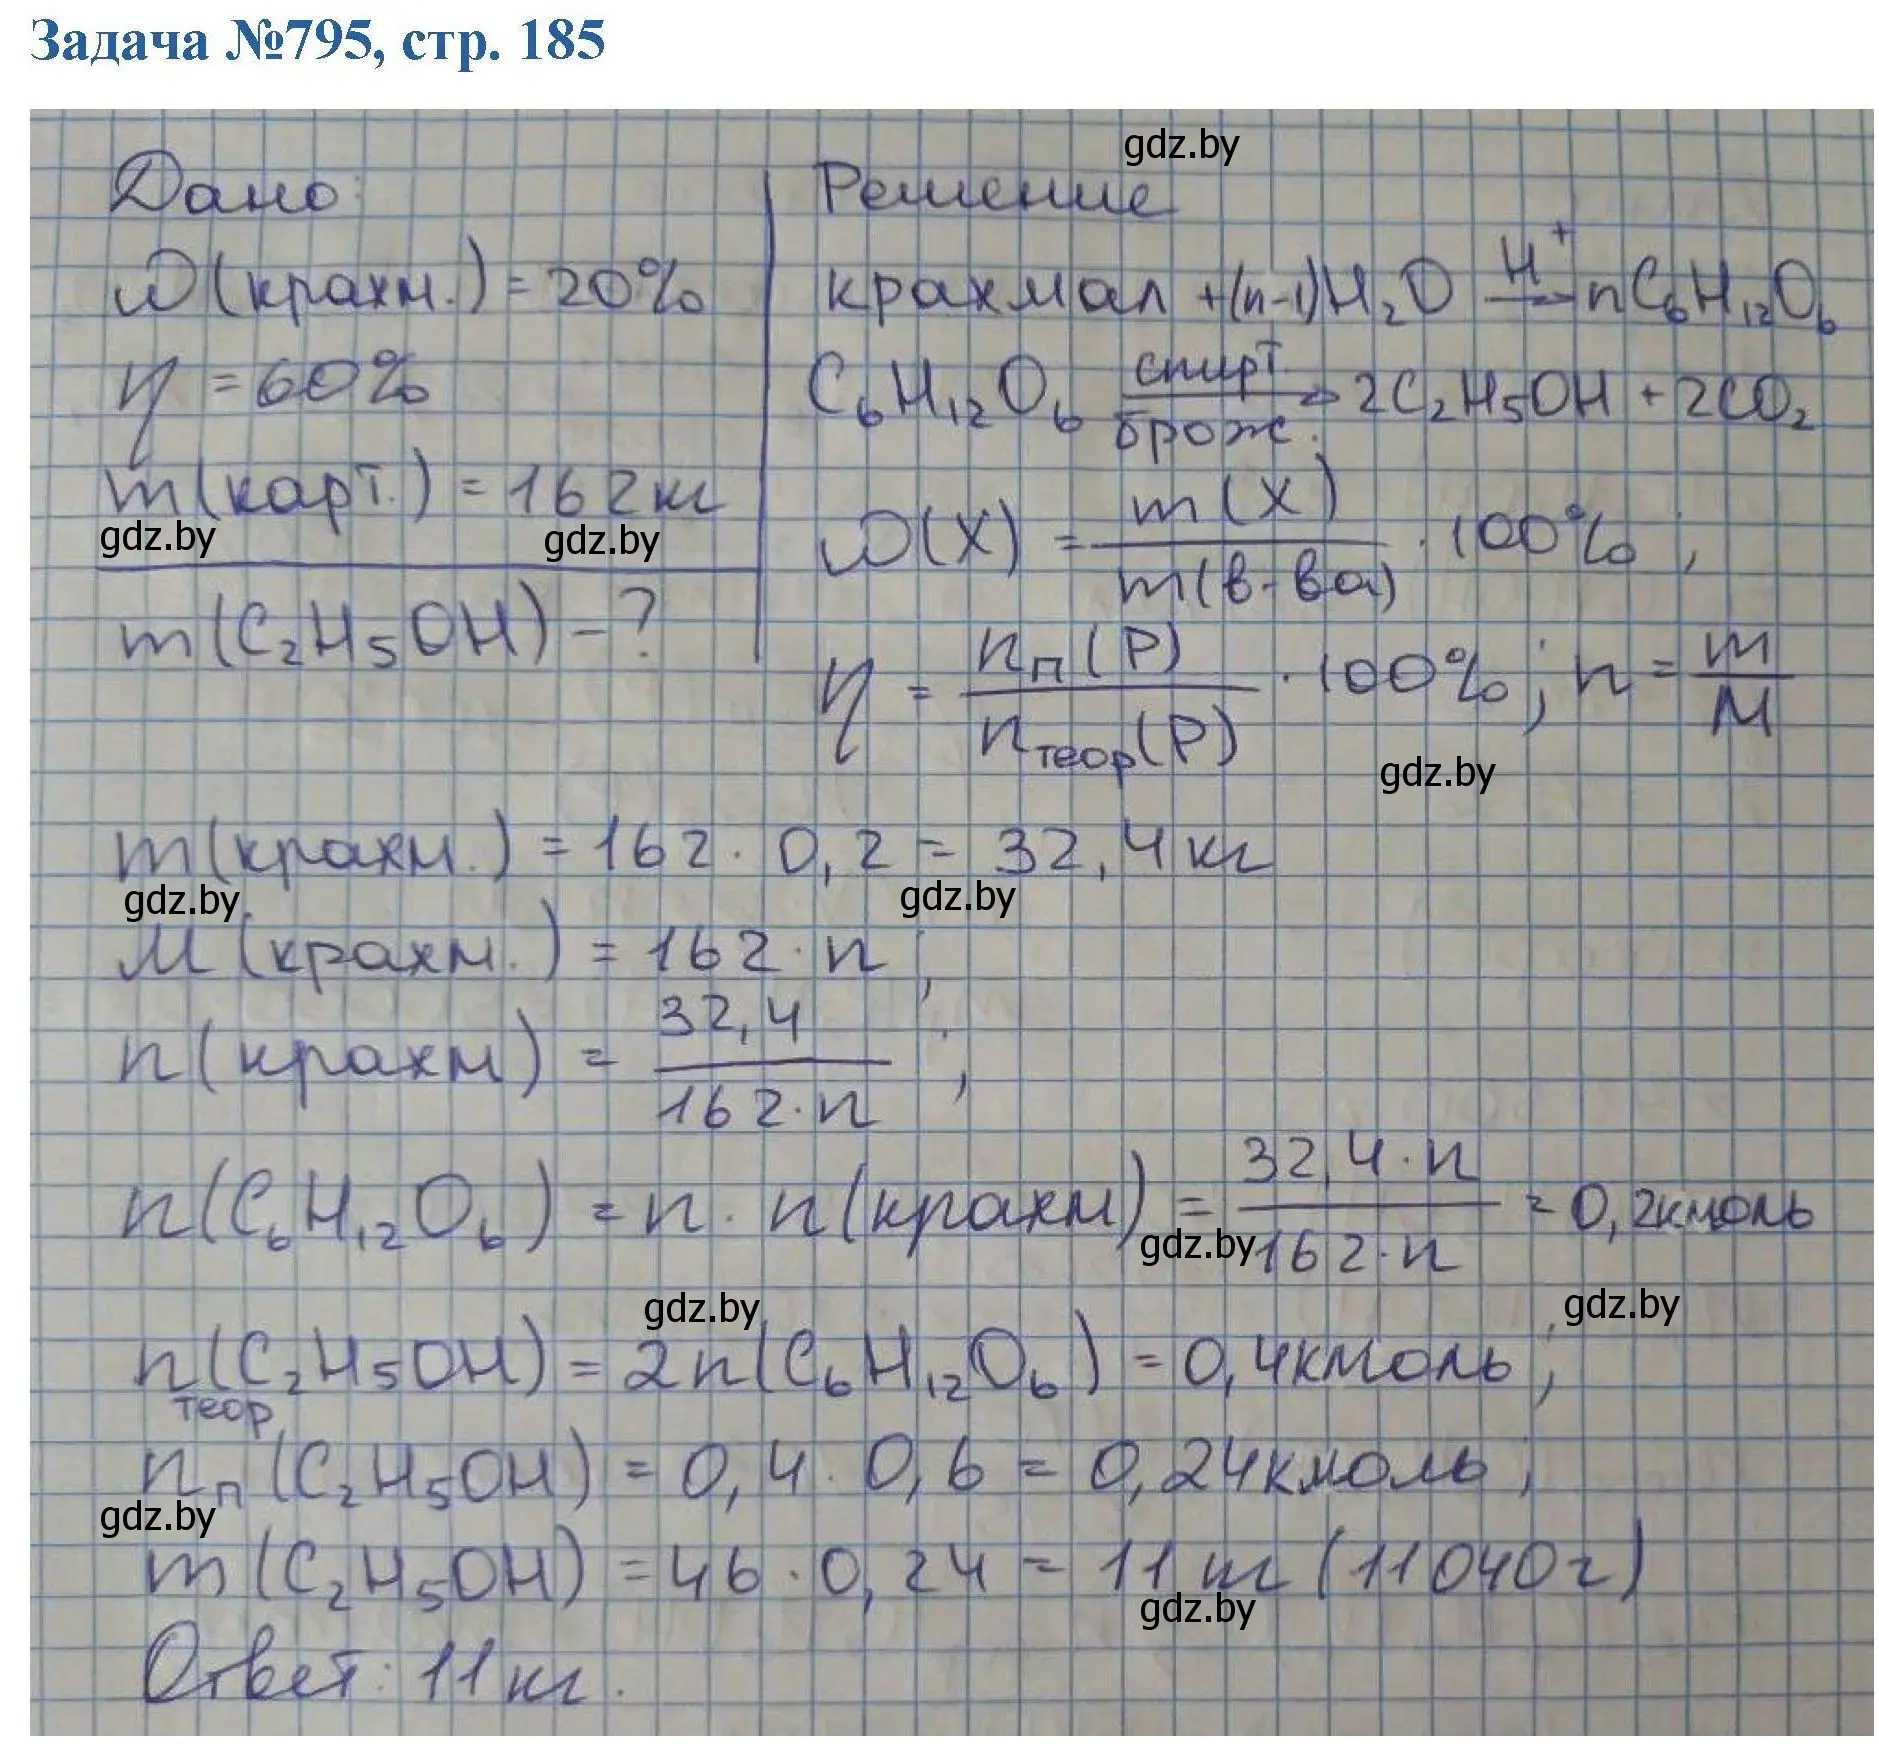 Задача №795, стр. 185
gdz.by
Дано:
ω(крахм.) = 20%
η = 60%
m(карт.) = 162 кг
gdz.by gdz.by
m(C₂H₅OH) – ?
Решение
крахмал + (n-1)H₂O H⁺→ nC₆H₁₂O₆
C₆H₁₂O₆ спирт. брож.→ 2C₂H₅OH + 2CO₂
ω(X) = m(X) / m(в-ва) · 100%;
η = nп(P) / nтеор(P) · 100%; n = m / M
gdz.by
m(крахм.) = 162 · 0,2 = 32,4 кг
gdz.by gdz.by
M(крахм.) = 162 · n;
n(крахм) = 32,4 / 162·n;
n(C₆H₁₂O₆) = n · n(крахм) = 32,4·n / 162·n = 0,2кмоль
gdz.by
gdz.by gdz.by
nтеор(C₂H₅OH) = 2n(C₆H₁₂O₆) = 0,4кмоль;
nп(C₂H₅OH) = 0,4 · 0,6 = 0,24кмоль;
gdz.by
m(C₂H₅OH) = 46 · 0,24 = 11 кг (11040г)
gdz.by
Ответ: 11 кг.